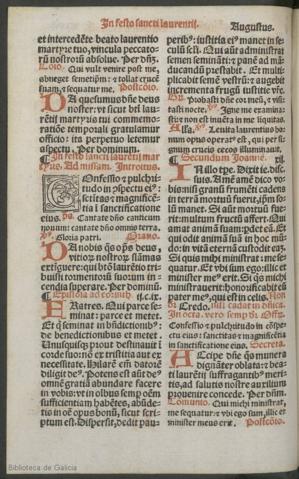 In festo sancti laurentii. Augustus.
et intercedẽte beato laurentio
martyre tuo, vincula peccato-
rũ nostrorũ absolue. Per dñm.
Coĩo. Qui vult venire post me,
abneget semetipm̃: et tollat crucẽ
suam, et sequatur me. Postcõio.
DA quesumus oĩps deus
noster: vt sicut bti lau-
rẽtij martyris tui commemo-
ratiõe temporali gratulamur
officio: ita perpetuo letemur
aspectu. Per dominum.
In festo sancti laurẽtij mar-
tyris. Ad missam. Introitus.
COnfessio et pulchri-
tudo in ꝯspectu ei⁹:
sctitas et magnificẽ-
tia ĩ sanctificatione
eius. ps. Cantate dño canticum
nouum: cantate dño omnis terra.
Gloria patri. Orato.
DA nobis qs oĩps deus
vitiorum nostrorum flãmas
extĩguere: qui btõ laurẽtio tri-
buisti tormentorum suorum in-
cendia superare. Per dominũ.
Epistola ad corinth. ij. c. ix.
FRatres. Qui parce se-
minat: parce et metet.
Et q̃ seminat in bñdictionib⁹:
de benedictionibus et metet.
Unusquisqz prout destinauit ĩ
corde suo: nõ ex tristitia aut ex
necessitate. Hilarẽ em̃ datorẽ
diligit de⁹. Potens est aũt de⁹
omnẽ gratiã abundare facere
in vobis: vt in oĩbus semp om̃
sufficientiam habẽtes, abũde-
tis in oẽ opus bonũ, sicut scri-
ptum est. Dispersit, dedit pau-
perib⁹: iustitia ei⁹ manet in se-
culũ seĩ. Qui aũt administrat
semen seminãti: et panẽ ad mã-
ducandũ prestabit. Et multi-
plicabit semẽ vestrũ: et augebit
incrementa frugũ iustitie vrẽ.
Gr. Probasti dñe cor meũ, et visi-
tasti nocte. Igne me examina-
sti: et non est inuẽta in me iniquitas.
Alla. Leuita laurentius bo-
num opus operat⁹ est, qui per si-
gnum crucis cecos illuminauit.
Secundum Joannẽ. xij.
IN illo tpe. Dixit ie. di-
scip. suis. Amẽ amẽ dico vo-
bis: nisi granũ frumẽti cadens
in terrã mortuũ fuerit, ipm̃ so-
lũ manet. Si aũt mortuũ fue-
rit: multum fructũ affert. Qui
amat animã suam: pdet eã. Et
qui odit animã suã in hoc mũ-
do: in vitã eternã custodit eã.
Si quis mihi ministrat: me se-
quatur. et vbi sum ego: illic et
minister me⁹ erit. Si qs mihi
ministrauerit: honorificabit eũ
pater me⁹, qui est in celis.
Credo.
In octa. vero semp ds. Offr.
Confessio et pulchritudo in cõspe-
ctu eius: sanctitas et magnificẽtia
in sanctificatione eius. Secreta.
ACcipe dñe qs munera
dignãter oblata: et bea-
ti laurẽtij suffragantib⁹ meri-
tis, ad salutis nostre auxilium
prouenire concede. Per dñm.
Comunio. Qui michi ministrat,
me sequatur: et vbi ego sum, illic et
minister meus erit. Postcõio.
Biblioteca de Galicia